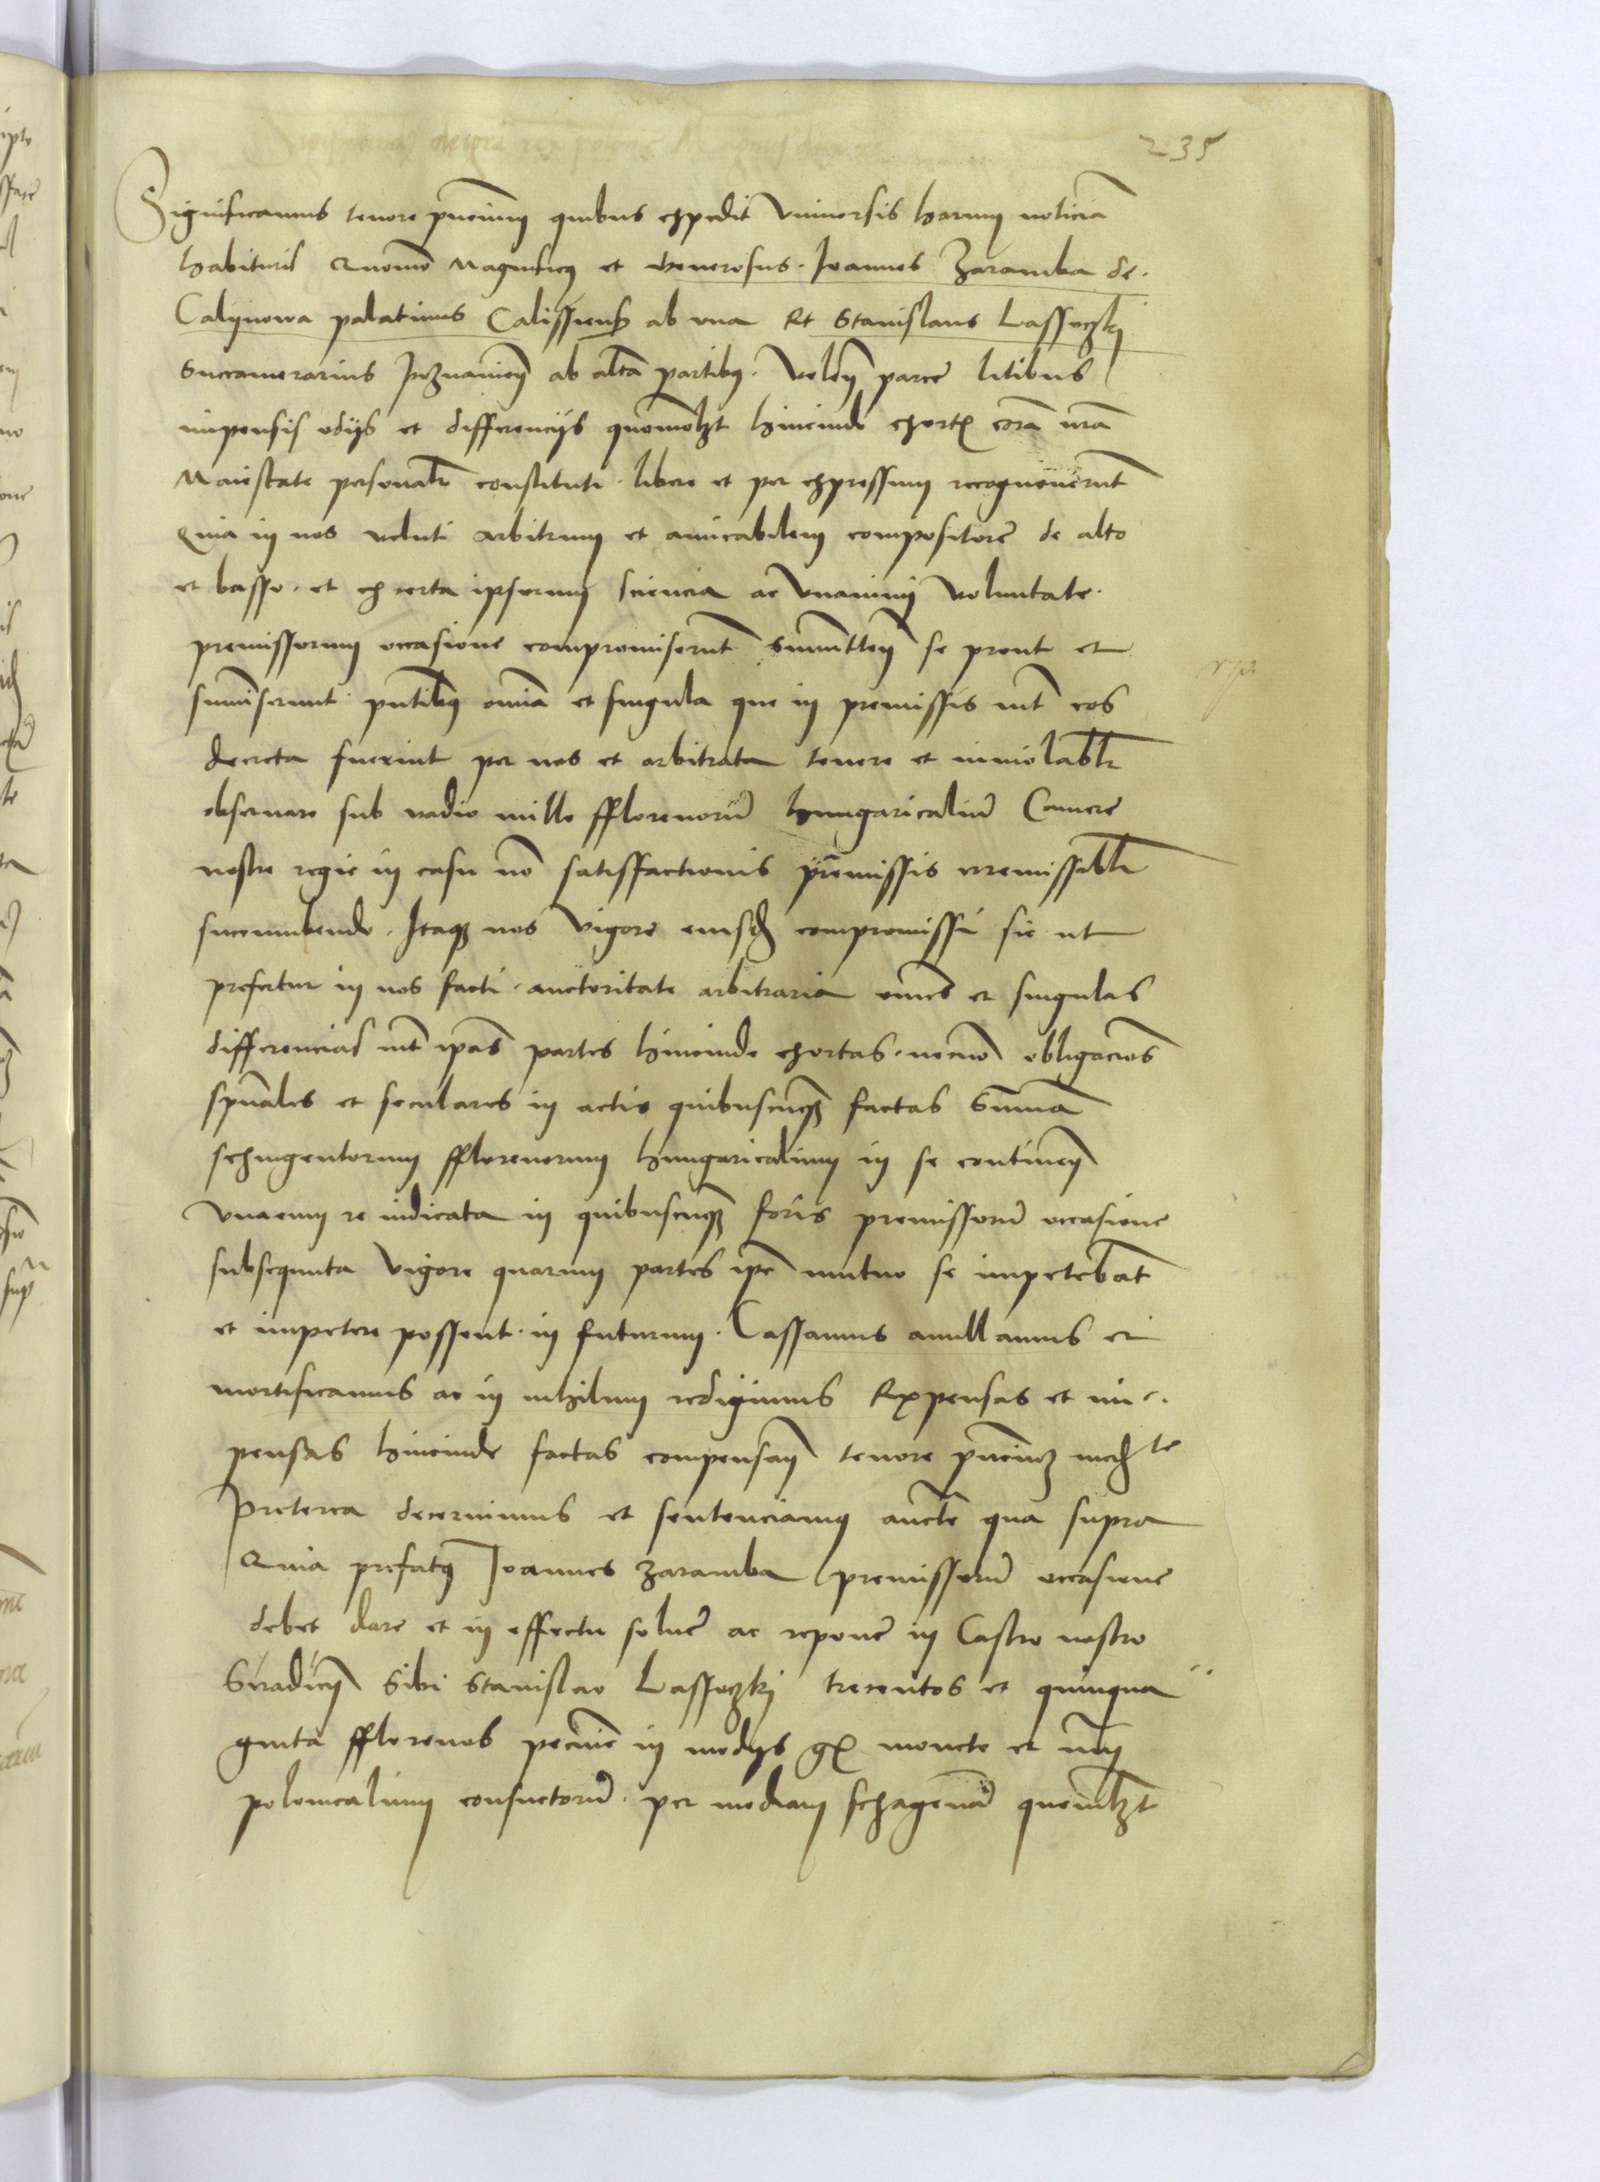 235
Significamus tenore pñcium quibus expedit Vniuersis harum noticiã
habituris Quomõ Magnificus et Generosus Ioannes Zaramba de
Calynowa palatinus Calissiensis ab vna Et Stanislaus Lassoczkj
Succamerarius Poznanieñ ab altã partibus Voleñ parce litibus
impensis odÿs et differencÿs quomolzt hincinde exortis corã nrã
Maiestate personalr constituti libere et per expressum recognouerunt
Quia in nos veluti arbitrum et amicabilem compositorẽ de alto
et basso et ex certa ipsorum sciencia ac Vnanimi Voluntate
premissorum occasione compromiserunt summitteñ se prout et
summiserunt pñtibus omnia et singula que in premissis int eos
decreta fuerint per nos et arbitrata tenere et inuiolablr
obseruare sub vadio mille fflorenorũ hungaricaliũ Camere
nostre regie in casu nõ satisfactionis premissis irremissiblr
succumbendo Itaque nos Vigore eiusdem compromissi sic ut
prefertur in nos facti auctoritate arbitraria omnes et singulas
differencias int ipas partes hincinde exortas necnõ obligaciões
spũales et seculares in actis quibuscunque factas Summã
sexingentorum fflorenorum hungaricalium in se contineñ
Vnacum re iudicata in quibuscunque foris premissorũ occasione
subsequuta Vigore quarum partes ipe mutuo se impetebãt
et impetere possent in futurum Cassamus anullamus et
mortificamus ac in nihilum redigimus Expensas et im
pensas hincinde factas compensañ tenore pñcium mediãte
Preterea decernimus et sentenciamus aucte qua supra
Quia prefatus Ioannes Zaramba premissorũ occasione
debet dare et in effectu soluẽ ac reponẽ in Castro nostro
Siradieñ Sibi Stanislao Lassoczkj trecentos et quinqua
ginta fflorenos pecunie in medÿs gr monete et nũi
polonicalium consuetorũ per mediam sexagenã quemlzt